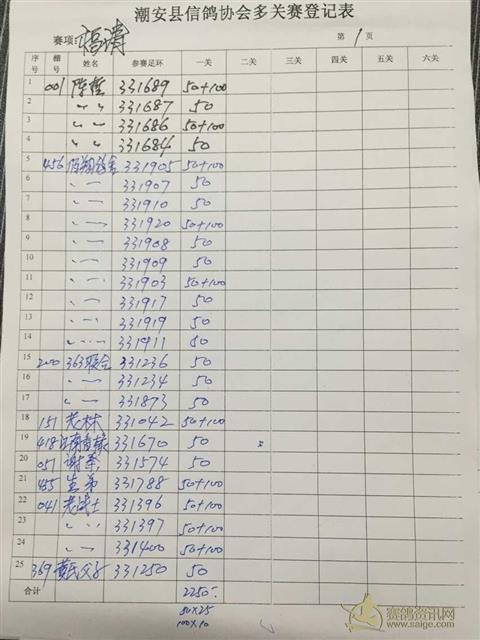 潮安县信鸽协会多关赛登记表
赛项: 福清 第 1 页
序号 棚号 姓名 参赛足环 一关 二关 三关 四关 五关 六关
1 001 陈哲 331689 50+100
2 〃 〃 331687 50
3 〃 〃 331686 50+100
4 〃 〃 331684 50
5 456 331905 50+100
6 〃 — 331907 50
7 〃 — 331910 50
8 〃 — 331920 50+100
9 〃 — 331908 50
10 〃 — 331909 50
11 〃 — 331903 50+100
12 〃 — 331917 50
13 〃 — 331919 50
14 〃 — 331911 50
15 200 363联合 331236 50
16 〃 — 331234 50
17 〃 — 331873 50
18 151 老林 331042 50+100
19 418 331670 50
20 051 331574 50
21 455 生弟 331788 50+100
22 041 老战士 331396 50+100
23 〃 〃 331397 50+100
24 〃 — 331400 50+100
25 369 黄氏父子 331250 50
合计 2250.-
50×25
100×10
赛鸽资讯网
www.saige.com